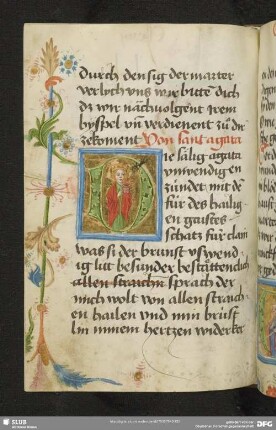 durch den sig der marter
verlych vns wir bitte dich
dz wir nachuolgent irem
byspel vn verdienent zu dir
zekoment Von sant agata
ie sälig agata
ynwendig en
zündet mit de
für des hailig
en gaistes
schatz für clam
was si der brunst vswend
ig litt besunder bestättendlich
allen straichn sprach der
mich wolt von allen straich
en hailen vnd min brüst
lin minem hertzen widerker
SLUB
DFG